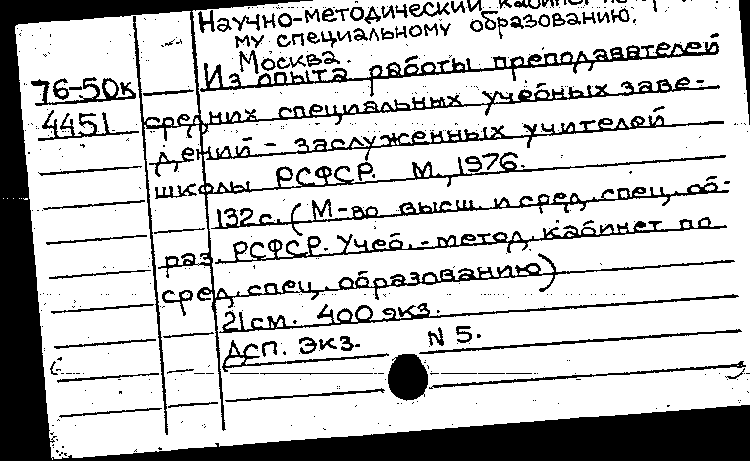 Научно-методический кабинет по
му специальному образованию.
Москва.
76-50к Из опыта работы преподавателей
4451 средних специальных учебных заве-
дений - заслуженных учителей
школы РСФСР. М., 1976.
132 с. (М-во высш. и сред. спец. об-
раз. РСФСР. Учеб.-метод. кабинет по
сред. спец. образованию)
21 см. 400 экз.
ДСП. Экз. N 5.